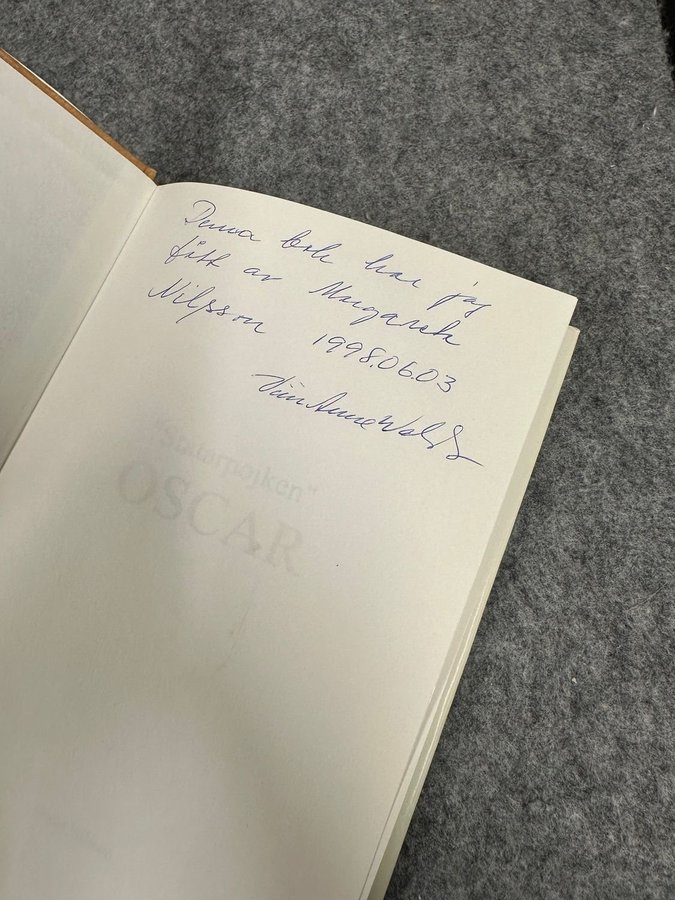 Denna bok har jag
fått av Margareta
Nilsson 1998.06.03
"Statarpojken"
OSCAR